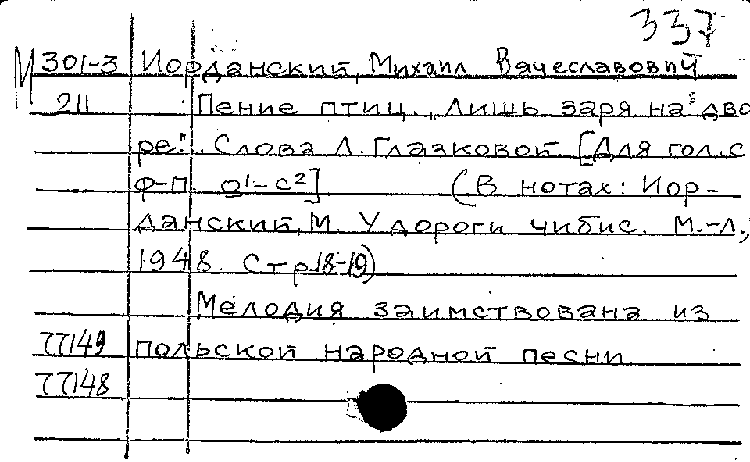 337
М 301-3 Иорданский, Михаил Вячеславович
211 Пение птиц. "Лишь заря на дво
ре". Слова Л. Глазковой [Для гол. с
ф-п. d¹-c²] (В нотах: Иор-
данский, М. У дороги чибис. М.-Л.,
1948. Стр 18-19)
Мелодия заимствована из
77149 польской народной песни
77148